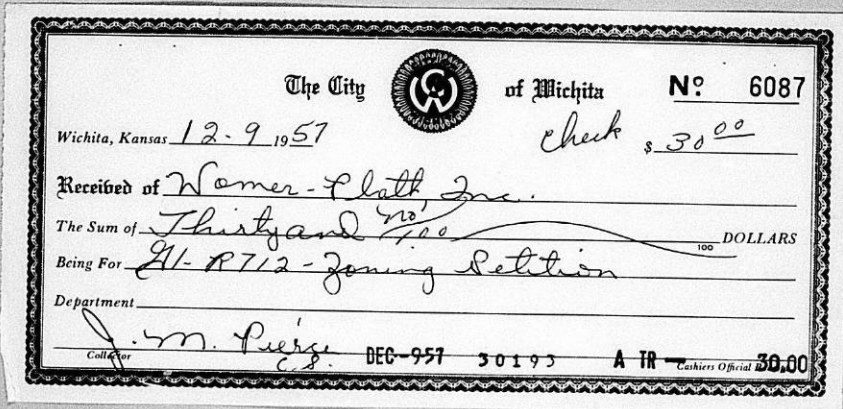 The City of Wichita No 6087
Wichita, Kansas 12-9 1957 check $ 30 00
Received of Womer-Plath, Inc.
The Sum of Thirty and no/100 100 DOLLARS
Being For R712-Zoning Petition
Department
J. M. Pierce
Collector C.S. DEC--957 30193 A TR — Cashiers Official 30.00